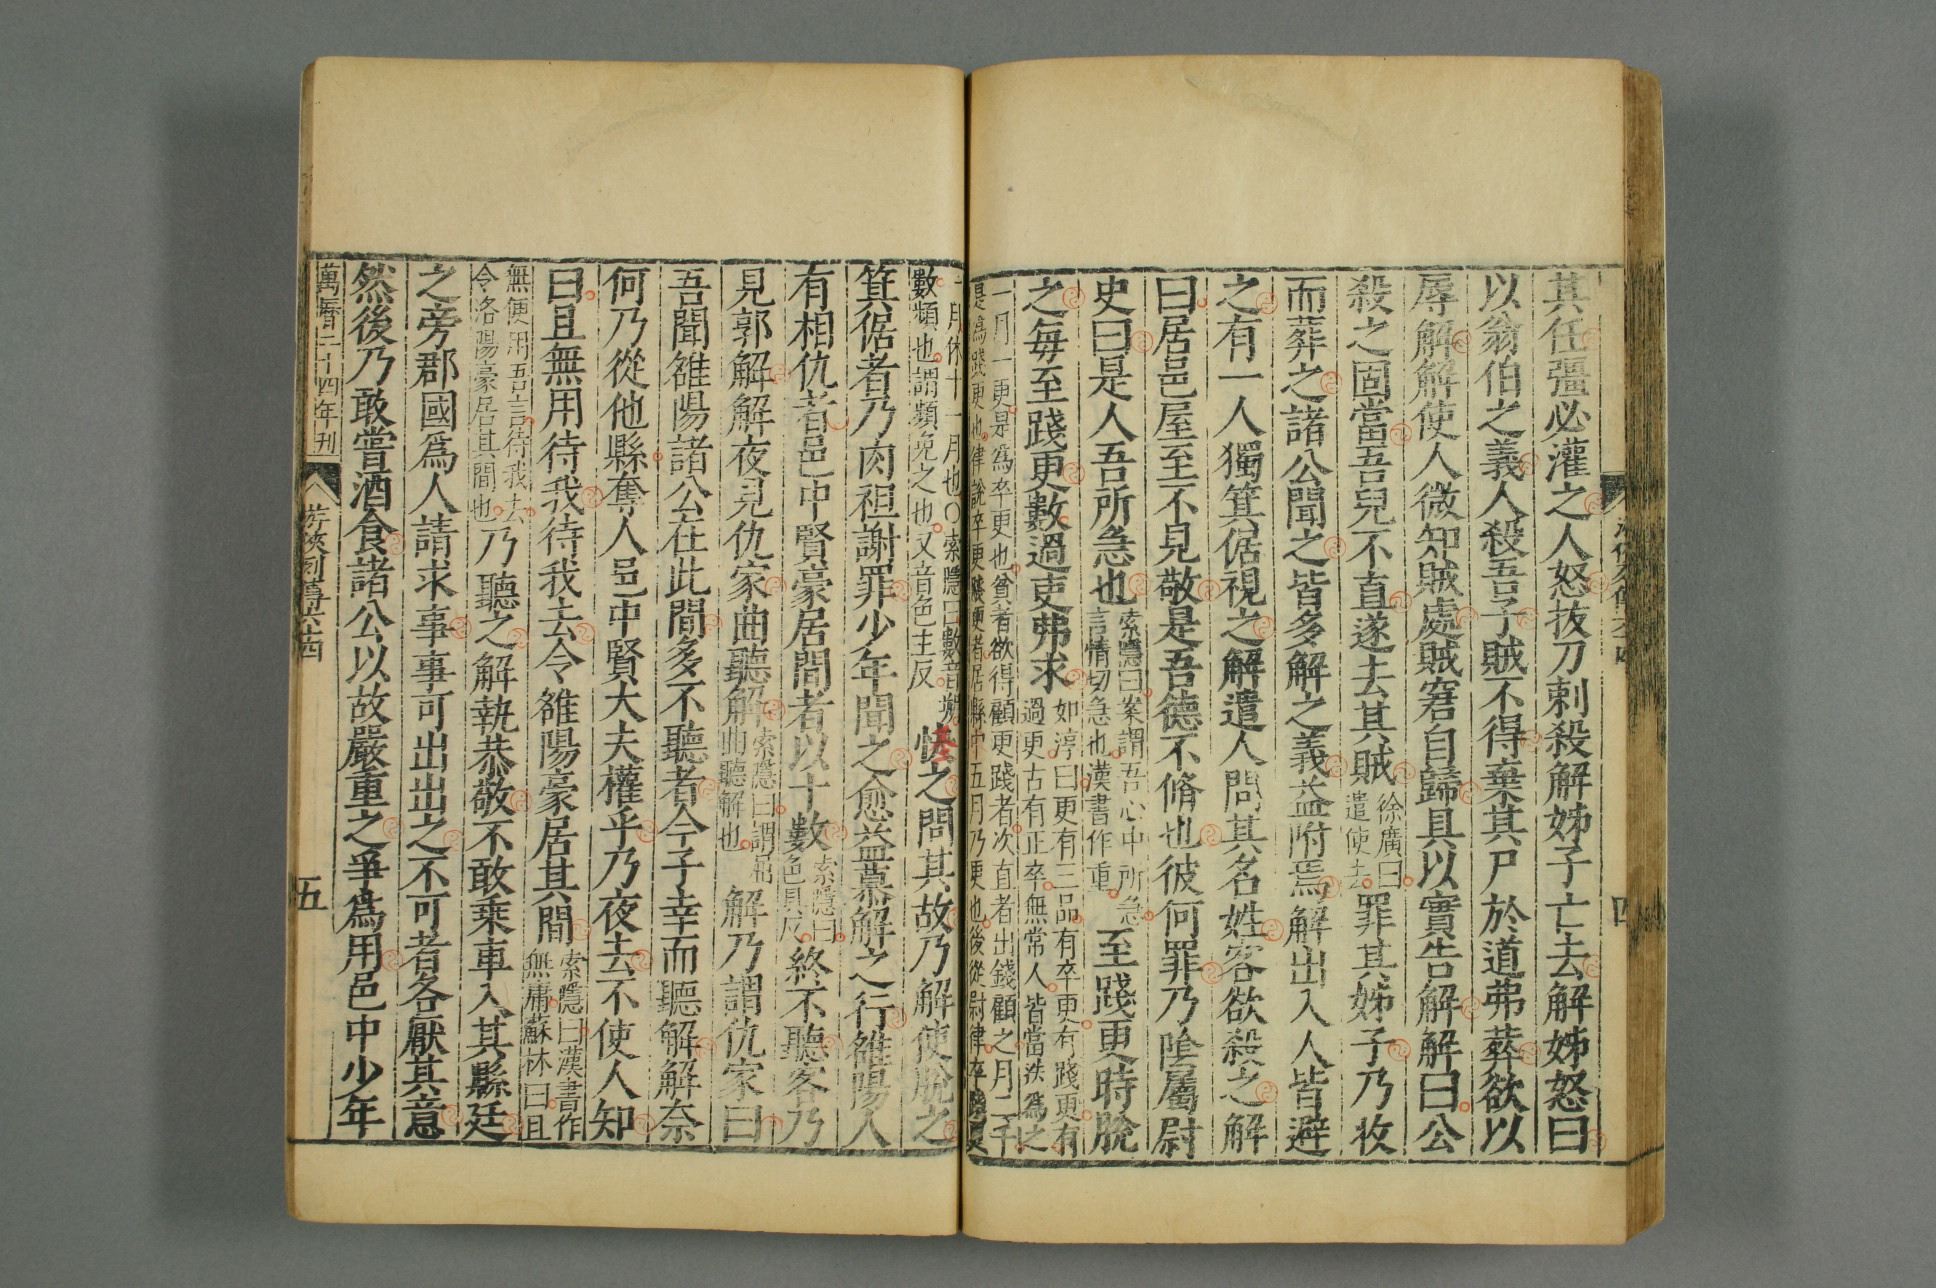 其任彊必灌之人怒拔刀刺殺解姊子亡去解姊怒曰
以翁伯之義人殺吾子賊不得棄其尸於道弗葬欲以
辱解解使人微知賊處賊窘自歸具以實告解解曰公
殺之固當吾兒不直遂去其賊徐廣曰遣使去罪其姊子乃收
而葬之諸公聞之皆多解之義益附焉解出入人皆避
之有一人獨箕倨視之解遣人問其名姓客欲殺之解
曰居邑屋至不見敬是吾德不脩也彼何罪乃陰屬尉
史曰是人吾所急也索隱曰案謂吾心中所急言情切急也漢書作重至踐更時脫
之每至踐更數過吏弗求如淳曰更有三品有卒更有踐更有過更古有正卒無常人皆當迭爲之
一月一更是爲卒更也貧者欲得顧更踐者次直者出錢顧之月二千
是爲踐更也律說卒更踐更者居縣中五月乃更也後從尉律卒踐更
一月休十一月也〇索隱曰數音朔數頻也謂頻免之也又音色主反怪之問其故乃解使脫之
箕倨者乃肉袒謝罪少年聞之愈益慕解之行雒陽人
有相仇者邑中賢豪居閒者以十數索隱曰色具反終不聽客乃
見郭解解夜見仇家曲聽解索隱曰謂屈曲聽解也解乃謂仇家曰
吾聞雒陽諸公在此閒多不聽者今子幸而聽解解奈
何乃從他縣奪人邑中賢大夫權乎乃夜去不使人知
曰且無用待我待我去令雒陽豪居其閒索隱曰漢書作無庸蘇林曰且
無便用吾言待我去令洛陽豪居其間也乃聽之解執恭敬不敢乘車入其縣廷
之旁郡國爲人請求事事可出出之不可者各厭其意
然後乃敢嘗酒食諸公以故嚴重之爭爲用邑中少年
萬曆二十四年刊
游俠列傳六十四
五